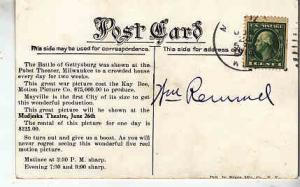 Post Card
This side may be used for correspondence. This side for address
The Battle of Gettysburg was shown at the
Pabst Theater, Milwaukee to a crowded house
every day for two weeks.
This great war picture cost the Kay Bee,
Motion Picture Co., $75,000.00 to produce.
Mayville is the first City of its size to get
this wonderful production.
This great picture will be shown at the
Modjeska Theatre, June 26th
The rental of this picture for one day is
$225.00.
So turn out and give us a boost. As you will
never regret seeing this wonderful five reel
motion picture.
Matinee at 2:30 P. M. sharp.
Evening 7:30 and 9:00 sharp.
Wm